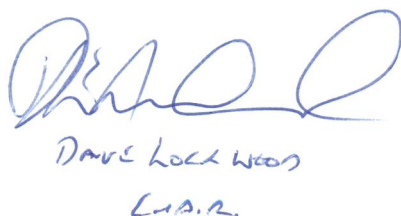 DAVE LOCKWOOD
CHAIR.